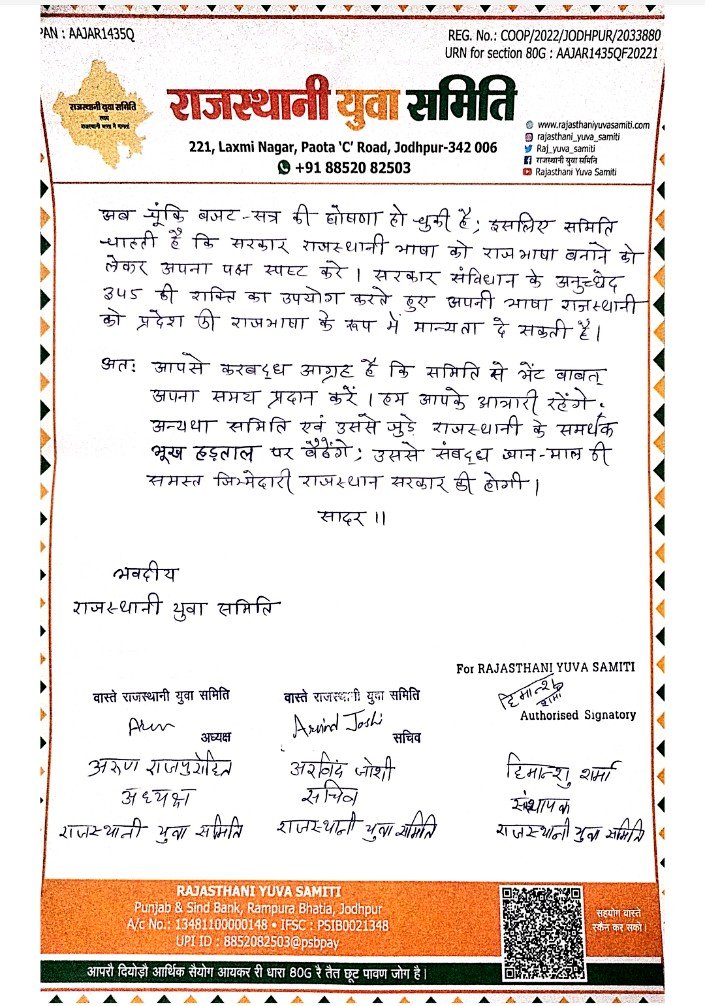 PAN : AAJAR1435Q
REG. No.: COOP/2022/JODHPUR/2033880
URN for section 80G : AAJAR1435QF20221
राजस्थानी युवा समिति
राजस्थानी युवा समिति
221, Laxmi Nagar, Paota 'C' Road, Jodhpur-342 006
+91 88520 82503
www.rajasthaniyuvasamiti.com
rajasthani_yuva_samiti
Raj_yuva_samiti
राजस्थानी युवा समिति
Rajasthani Yuva Samiti
अब चूंकि बजट-सत्र की घोषणा हो चुकी है; इसलिए समिति
चाहती है कि सरकार राजस्थानी भाषा को राजभाषा बनाने को
लेकर अपना पक्ष स्पष्ट करे। सरकार संविधान के अनुच्छेद
345 की शक्ति का उपयोग करते हुए अपनी भाषा राजस्थानी
को प्रदेश की राजभाषा के रूप में मान्यता दे सकती है।
अतः आपसे करबद्ध आग्रह है कि समिति से भेंट बाबत्
अपना समय प्रदान करें। हम आपके आभारी रहेंगे।
अन्यथा समिति एवं उससे जुड़े राजस्थानी के समर्थक
भूख हड़ताल पर बैठेंगे; उससे संबद्ध जान-माल की
समस्त जिम्मेदारी राजस्थान सरकार की होगी।
सादर ।।
भवदीय
राजस्थानी युवा समिति
For RAJASTHANI YUVA SAMITI
वास्ते राजस्थानी युवा समिति
वास्ते राजस्थानी युवा समिति
हिमान्शु शर्मा
Arun
Arvind Joshi
Authorised Signatory
अध्यक्ष
सचिव
अरुण राजपुरोहित
अरविंद जोशी
हिमान्शु शर्मा
अध्यक्ष
सचिव
संस्थापक
राजस्थानी युवा समिति
राजस्थानी युवा समिति
राजस्थानी युवा समिति
RAJASTHANI YUVA SAMITI
Punjab & Sind Bank, Rampura Bhatia, Jodhpur
A/c No.: 13481100000148 • IFSC : PSIB0021348
UPI ID : 8852082503@psbpay
सहयोग वास्ते
स्कैन कर सको।
आपरौ दियोड़ौ आर्थिक सैयोग आयकर री धारा 80G रे तैत छूट पावण जोग है।